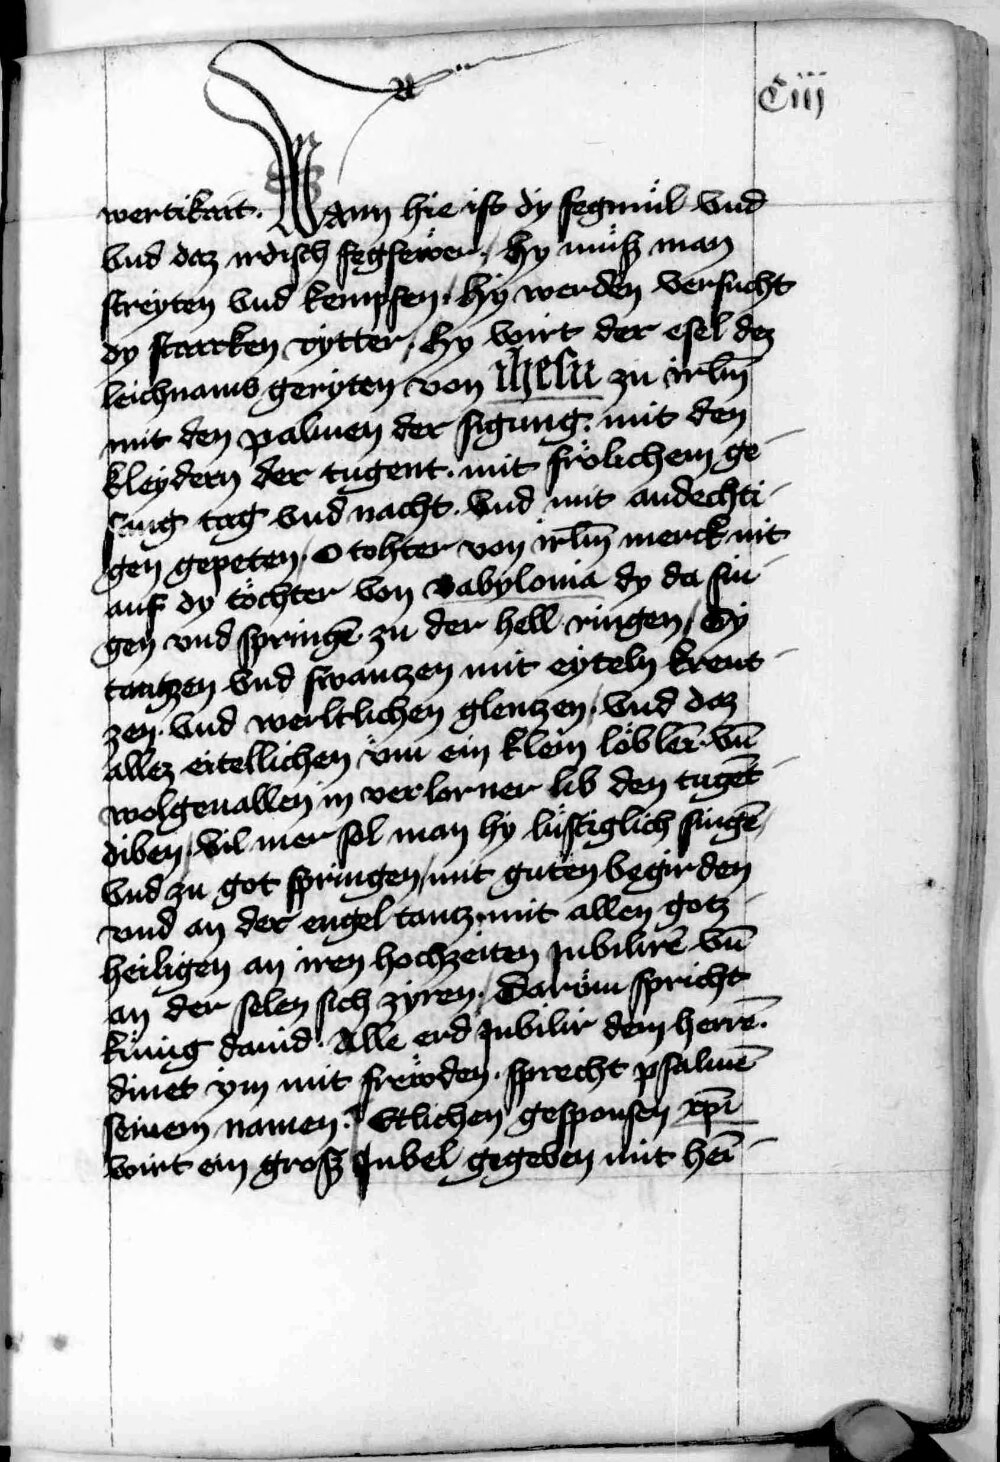 Ciij
wertikait. Wann hie ist dy fegmül vnd
vnd daz irdisch fegfewer / hy müß man
streyten vnd kempfen / hy werden versucht
dy starken rytter / hy wirt der esel dez
leichnams geryten von ihesu zu irlm̄
mit den palmen der sigung. mit den
kleydern der tugent. mit frölichem ge
sang tag vnd nacht. vnd mit andechti
gen gepeten / O tohter von irlm̄ merck nit
auf dy töchter von babylonia dy da sin
gen vnd springē zu der hell ringen / Dy
tantzen vnd swantzen mit eyteln krent
zen. vnd werltlichen glentzen / vnd daz
allez eitellichen vm̈ ein klein löblen̄. vn̄
wolgeuallen in verlorner lib den tugēt
diben / vil mer sol man hy lüstiglich singē /
vnd zu got springen / mit guten begirden
vnd an der engel tantz. mit allen gotz
heiligen an iren hochzeiten jubilirē vn̄
an der selen sich zyren / Darüm spricht
künig dauid. Alle erd jubilir dem herrē.
dinet ym mit frewden. sprecht psalmē
seinem namen. Etlichen gesponsen xp̄i
wirt ein groß jubel gegeben mit hei